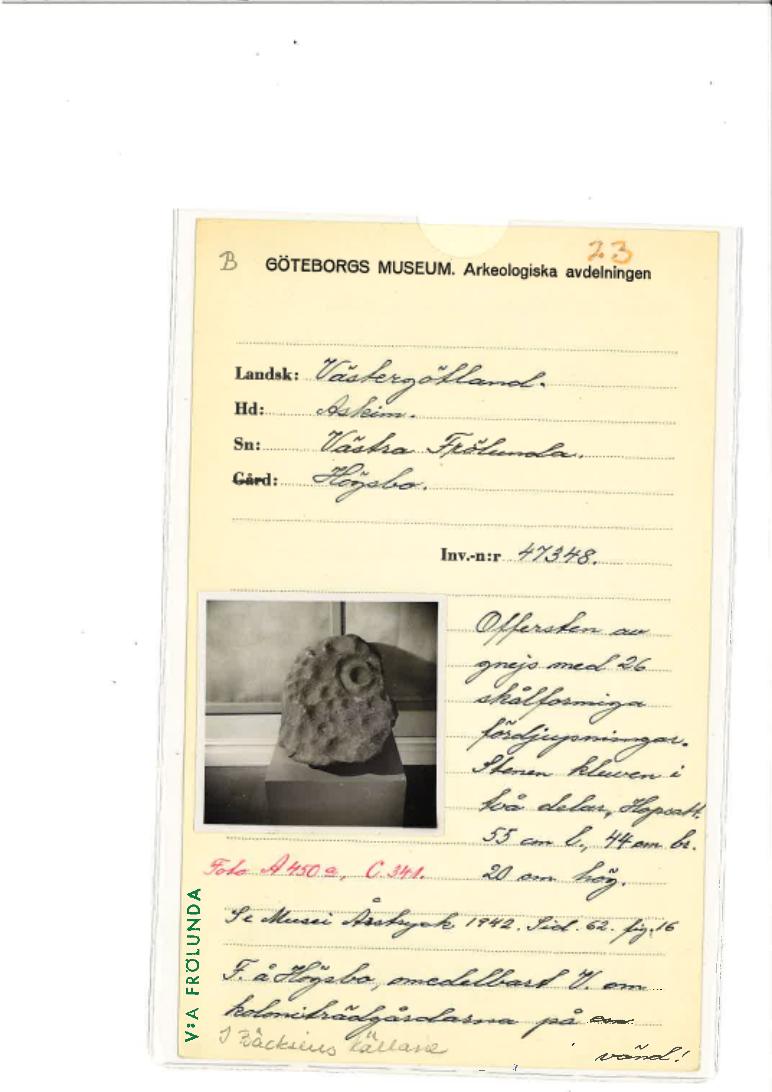 B
23
GÖTEBORGS MUSEUM. Arkeologiska avdelningen
Landsk: Västergötland.
Hd: Askim.
Sn: Västra Frölunda.
Gård: Högsbo.
Inv.-n:r 47348.
Offersten av
gnejs med 26
skålformiga
fördjupningar.
Stenen kluven i
två delar, Hopsatt.
55 cm l., 44 cm br.
20 cm hög.
Foto A 450 a, C. 341.
Se Musei Årstryck 1942. Sid. 62. fig. 16
F. å Högsbo, omedelbart V. om
koloniträdgårdarna på en
I källare
vänd!
V:A FRÖLUNDA